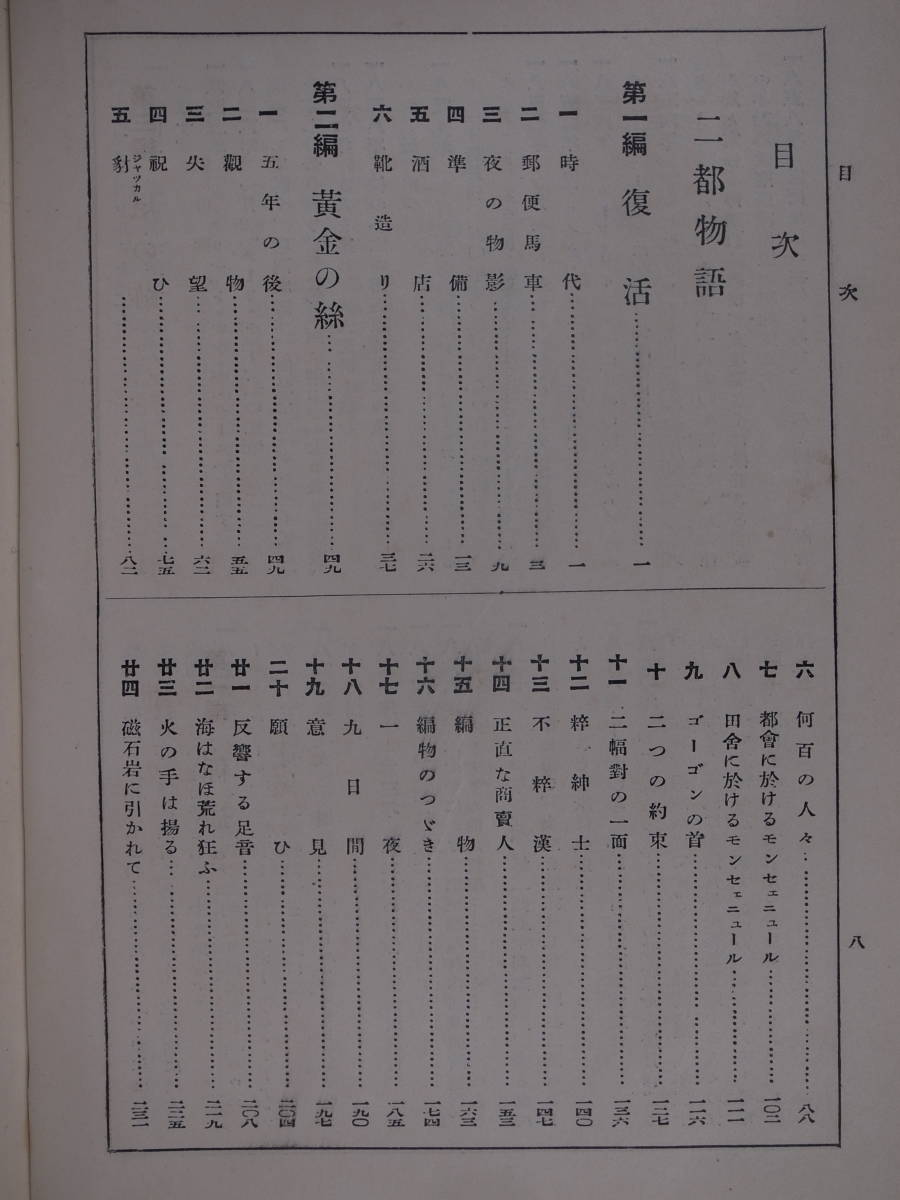 目次
八
目次
二都物語
第一編 復活……一
一 時代……一
二 郵便馬車……三
三 夜の物影……九
四 準備……一三
五 酒店……二六
六 靴造り……三七
第二編 黃金の絲……四九
一 五年の後……四九
二 觀物……五五
三 失望……六二
四 祝ひ……七五
五 豺ジヤツカル……八二
六 何百の人々……八八
七 都會に於けるモンセェニュール……一〇二
八 田舍に於けるモンセェニュール……一一一
九 ゴーゴンの首……一一六
十 二つの約束……一二七
十一 二幅對の一面……一三六
十二 粹紳士……一四〇
十三 不粹漢……一四七
十四 正直な商賣人……一五三
十五 編物……一六三
十六 編物のつゞき……一七四
十七 一夜……一八五
十八 九日間……一九〇
十九 意見……一九七
二十 願ひ……二〇四
廿一 反響する足音……二〇八
廿二 海はなほ荒れ狂ふ……二一九
廿三 火の手は揚る……二二五
廿四 磁石岩に引かれて……二三一